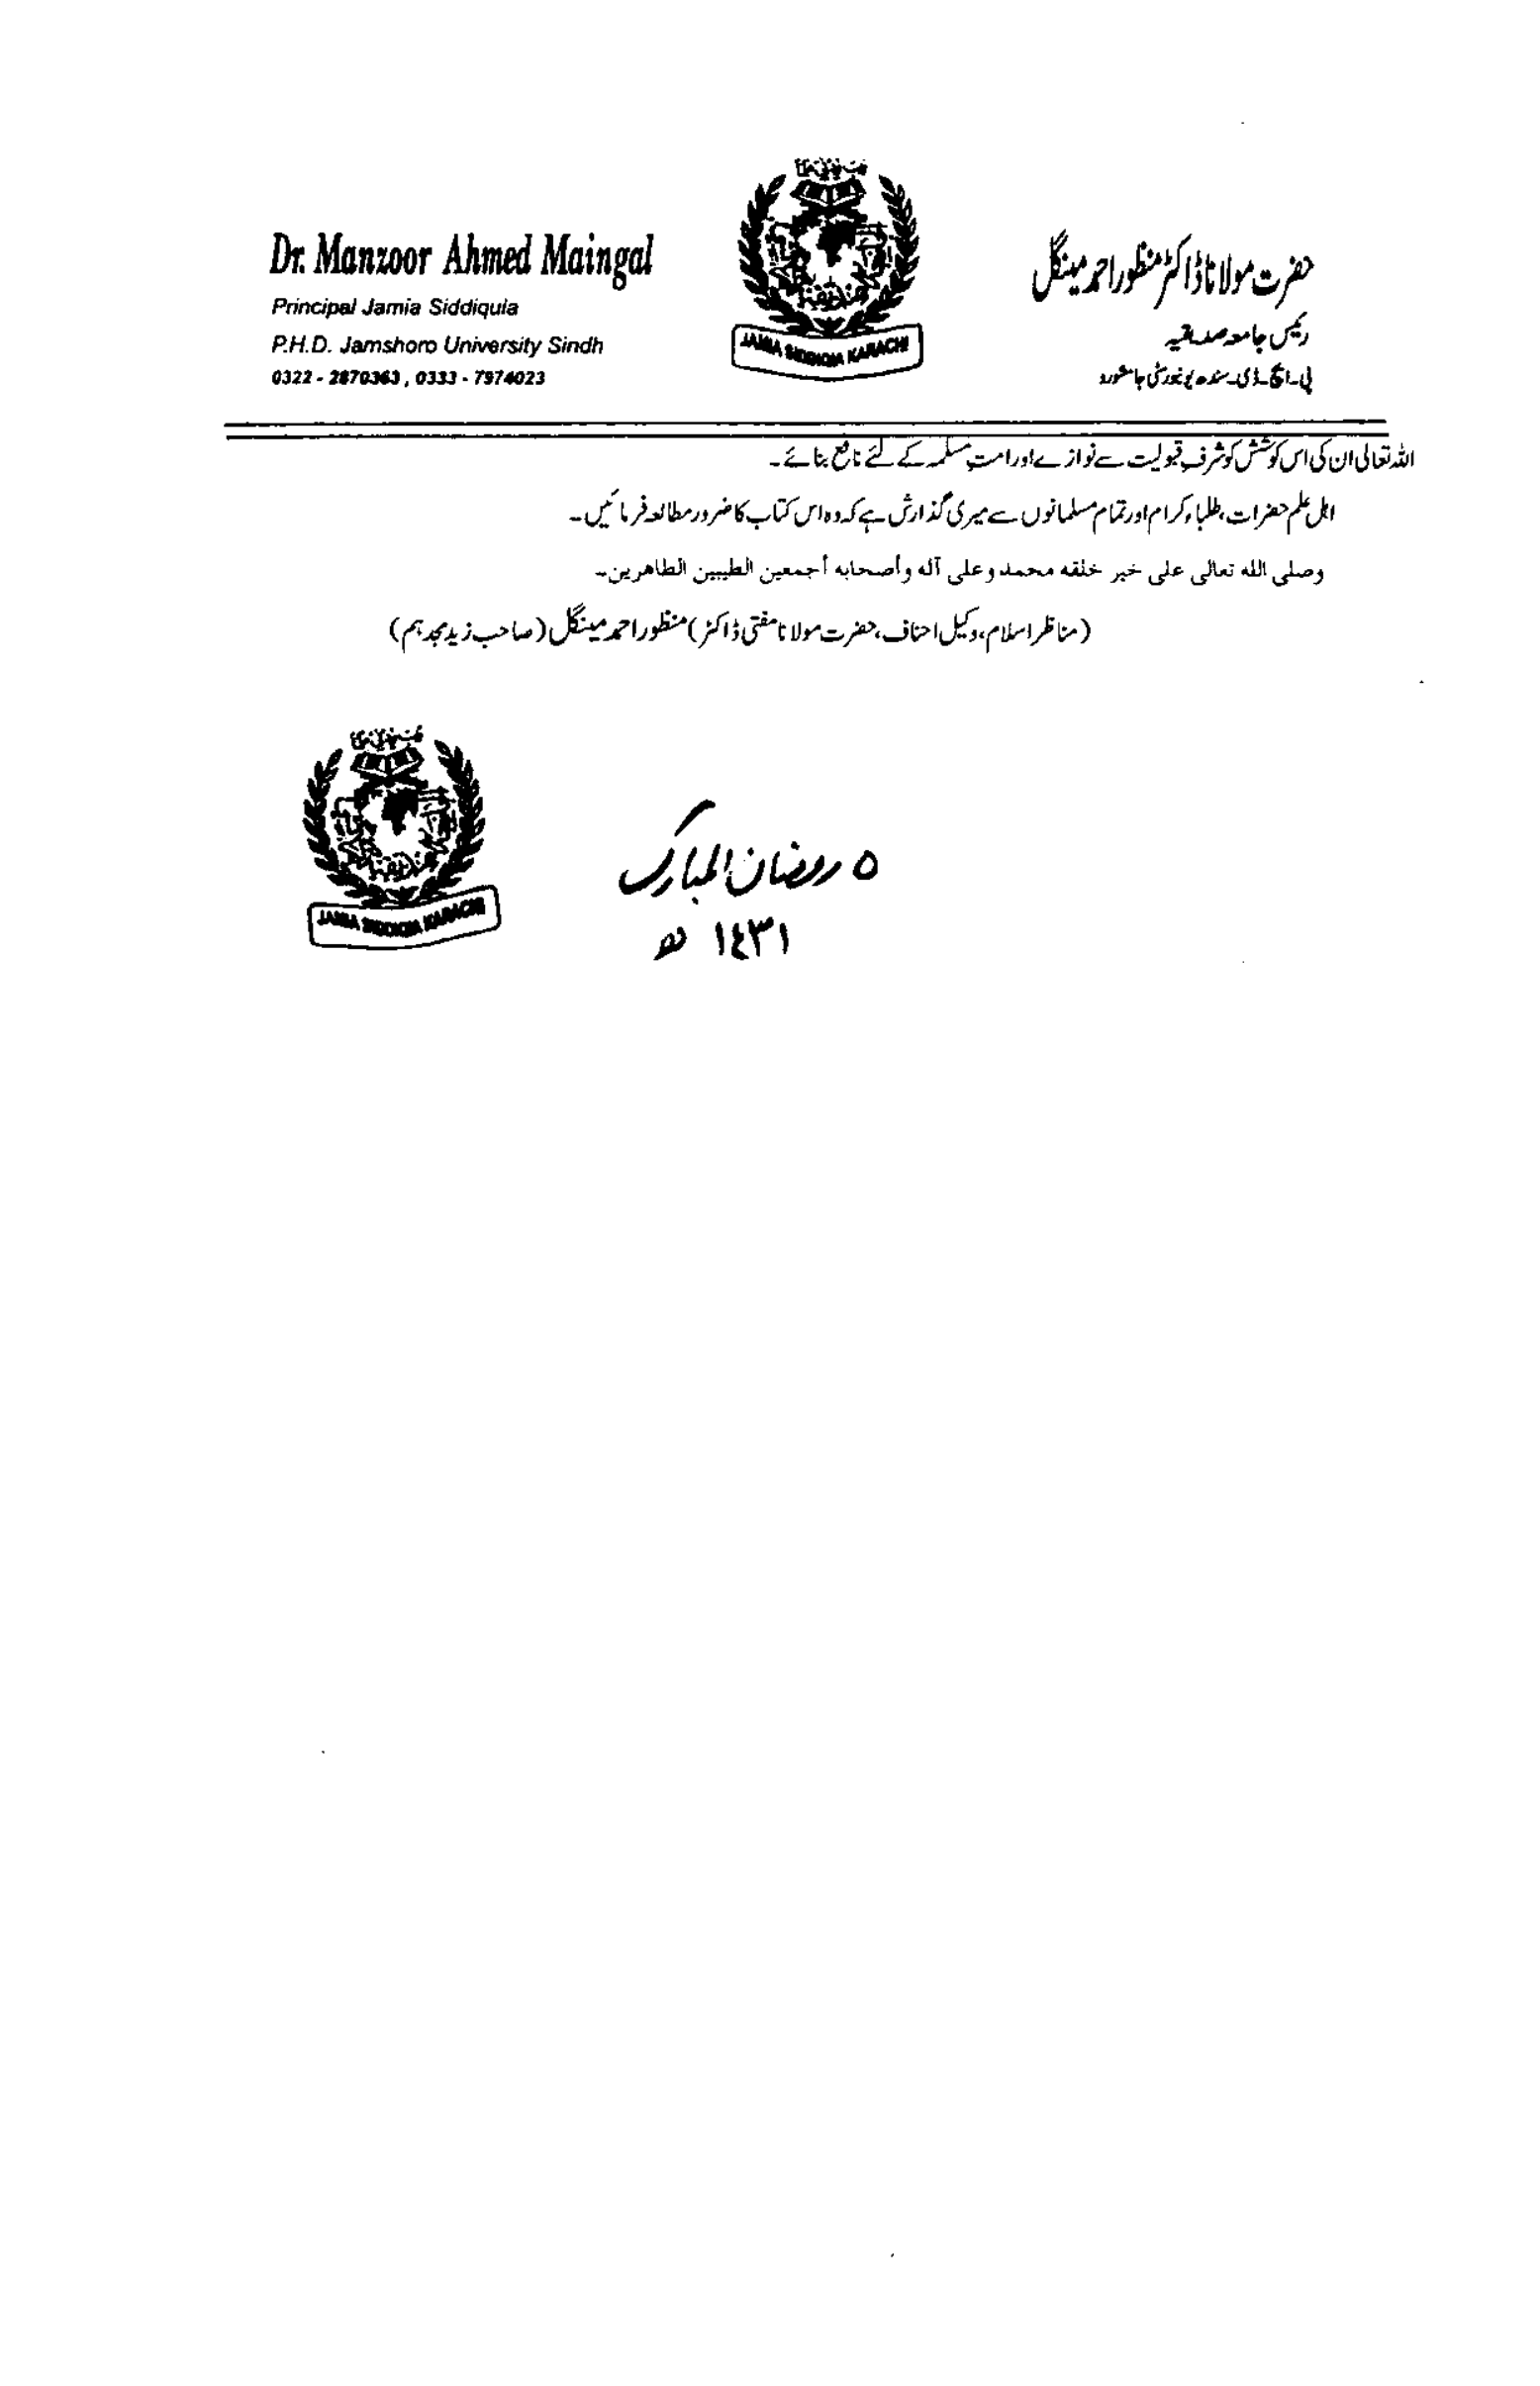 Dr. Manzoor Ahmed Maingal
Principal Jamia Siddiquia
P.H.D. Jamshoro University Sindh
0322 - 2870363 , 0333 - 7974023
JAMIA SIDDIQIA KARACHI
حضرت مولانا ڈاکٹر منظور احمد مینگل
رئیس جامعہ صدیقیہ
پی۔ایچ۔ڈی۔سندھ یونیورسٹی جامشورو
اللہ تعالی ان کی اس کوشش کو شرف قبولیت سے نوازے اور امتِ مسلمہ کے لئے نافع بنائے۔
اہل علم حضرات، طلباء کرام اور تمام مسلمانوں سے میری گذارش ہے کہ وہ اس کتاب کا ضرور مطالعہ فرمائیں۔
وصلى الله تعالى على خير خلقه محمد وعلى آله وأصحابه أجمعين الطيبين الطاهرين۔
(مناظر اسلام، وکیل احناف، حضرت مولانا مفتی ڈاکٹر) منظور احمد مینگل (صاحب زید مجدہم)
۵ رمضان المبارک
١٤٣١ ھ
JAMIA SIDDIQIA KARACHI